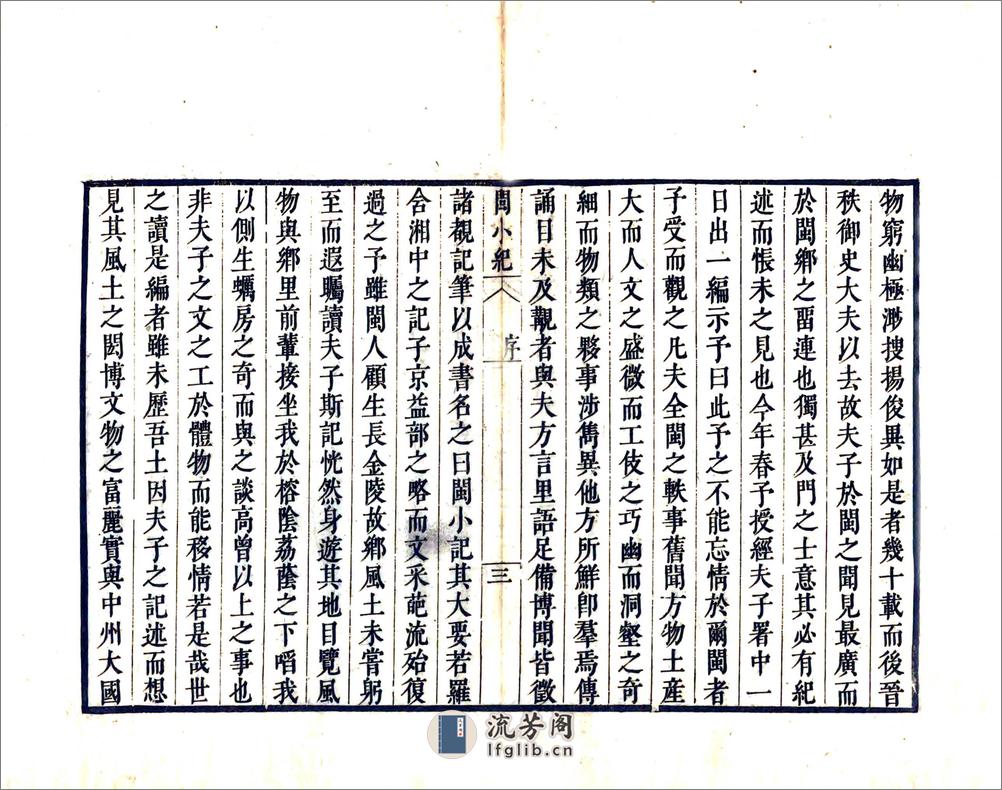 物窮幽極渺搜揚俊異如是者幾十載而後晉
秩御史大夫以去故夫子於閩之聞見最廣而
於閩鄉之畱連也獨甚及門之士意其必有紀
述而悵未之見也今年春予授經夫子署中一
日出一編示予曰此予之不能忘情於爾閩者
子受而觀之凡夫全閩之軼事舊聞方物土產
大而人文之盛微而工伎之巧幽而洞壑之奇
細而物類之夥事涉雋異他方所鮮卽羣焉傳
誦目未及觀者與夫方言里語足備博聞皆徵
閩小紀 序 三
諸覩記筆以成書名之曰閩小記其大要若羅
含湘中之記子京益部之略而文采葩流始復
過之予雖閩人顧生長金陵故鄉風土未嘗躬
至而遐矚讀夫子斯記恍然身遊其地目覽風
物與鄉里前輩接坐我於榕陰荔蔭之下啗我
以側生蠣房之奇而與之談高曾以上之事也
非夫子之文之工於體物而能移情若是哉世
之讀是編者雖未歷吾土因夫子之記述而想
見其風土之閎博文物之富麗實與中州大國
流芳阁
lfglib.cn